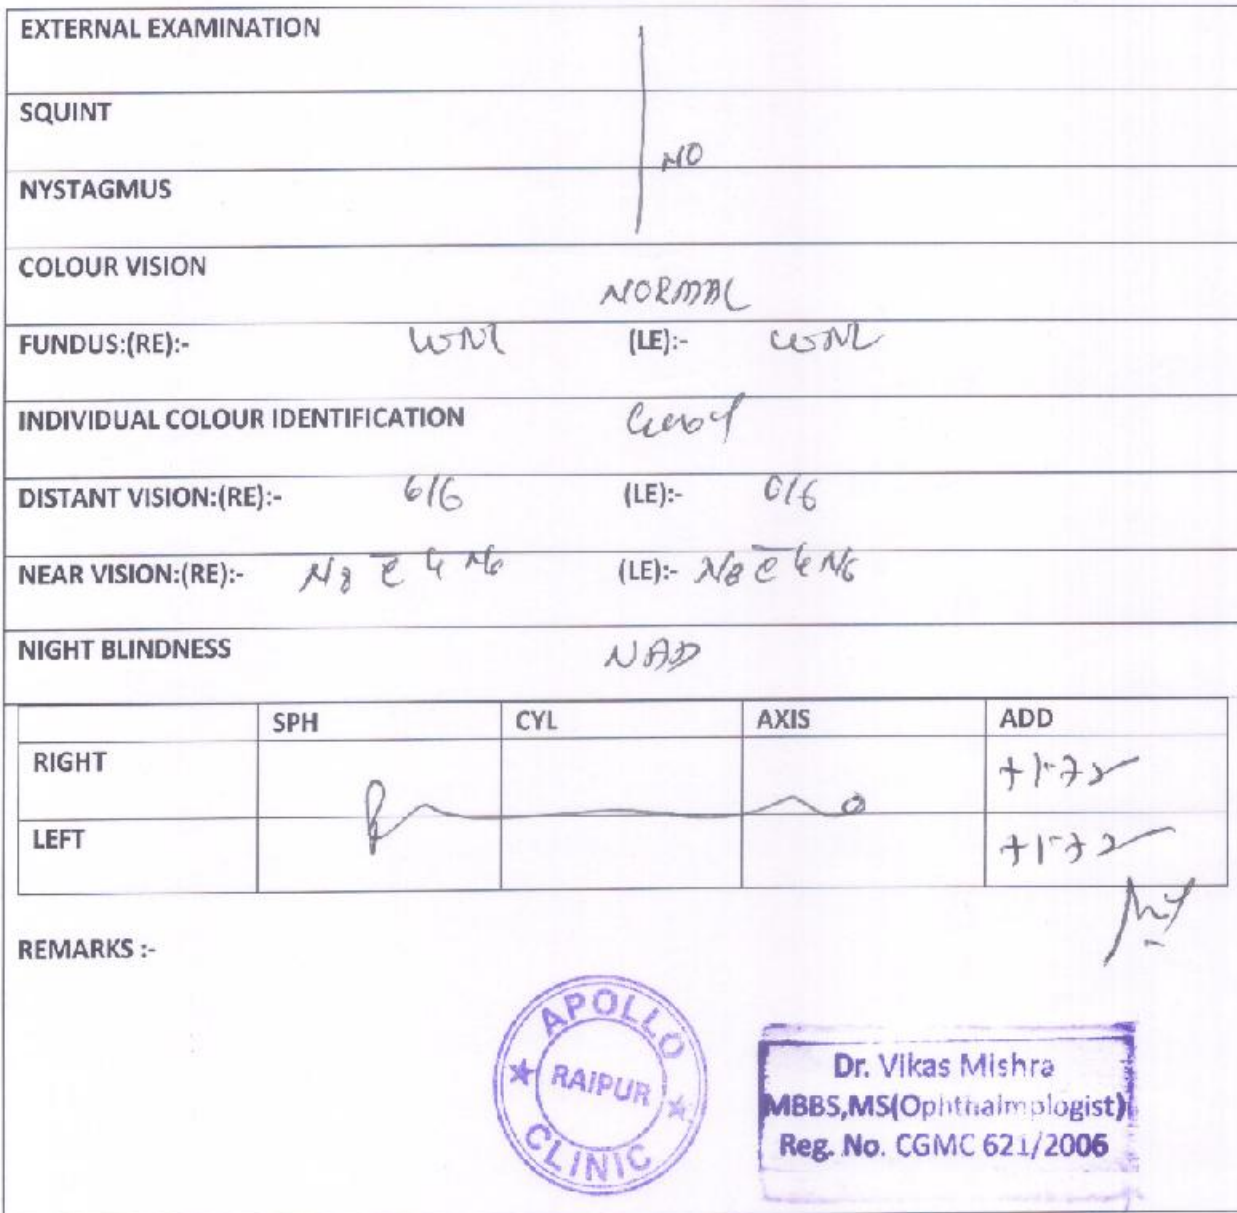 EXTERNAL EXAMINATION
SQUINT
NO
NYSTAGMUS
COLOUR VISION
NORMAL
FUNDUS:(RE):- WNL (LE):- WNL
INDIVIDUAL COLOUR IDENTIFICATION Good
DISTANT VISION:(RE):- 6/6 (LE):- 6/6
NEAR VISION:(RE):- N8 c̄ N6 (LE):- N8 c̄ N6
NIGHT BLINDNESS NAD
SPH CYL AXIS ADD
RIGHT
LEFT
REMARKS :-
APOLLO
RAIPUR
CLINIC
Dr. Vikas Mishra
MBBS,MS(Ophthalmplogist)
Reg. No. CGMC 621/2006